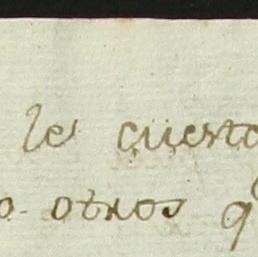 le cuesto
o otros q